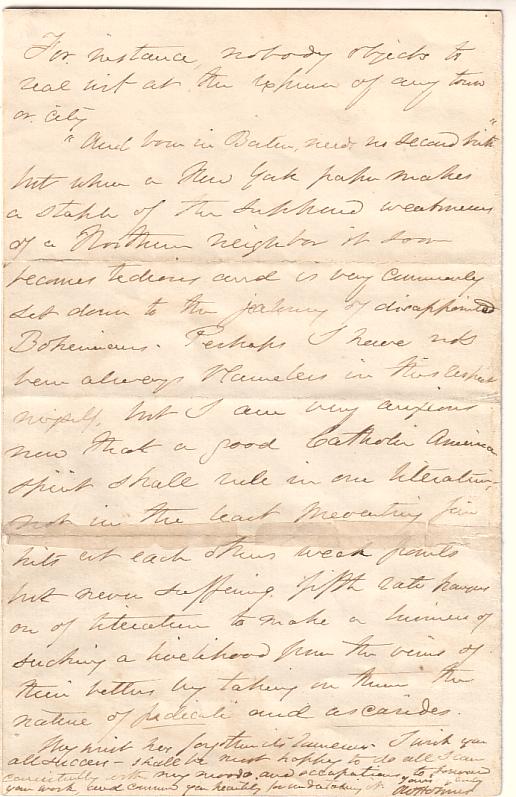 For instance, nobody objects to
real wit at the expense of any town
or city
"And born in Boston, needs no second birth"
but when a New York paper makes
a staple of the supposed weaknesses
of a Northern neighbor it soon
becomes tedious and is very commonly
set down to the jealousy of disappointed
Bohemians. Perhaps I have not
been always blameless in this respect
myself, but I am very anxious
now that a good Catholic American
spirit shall rule in our literature,
not in the least preventing fair
hits at each others weak points
but never suffering fifth rate hangers
on of literature to make a business of
sucking a livelihood from the veins of
their betters by taking on them the
nature of pediculi and ascarides.
My wrist has forgotten its lameness. I wish you
all success - shall be most happy to do all I can
consistently with my moods and occupations to forward
your work, and commend you heartily for undertaking it.
Yours very truly